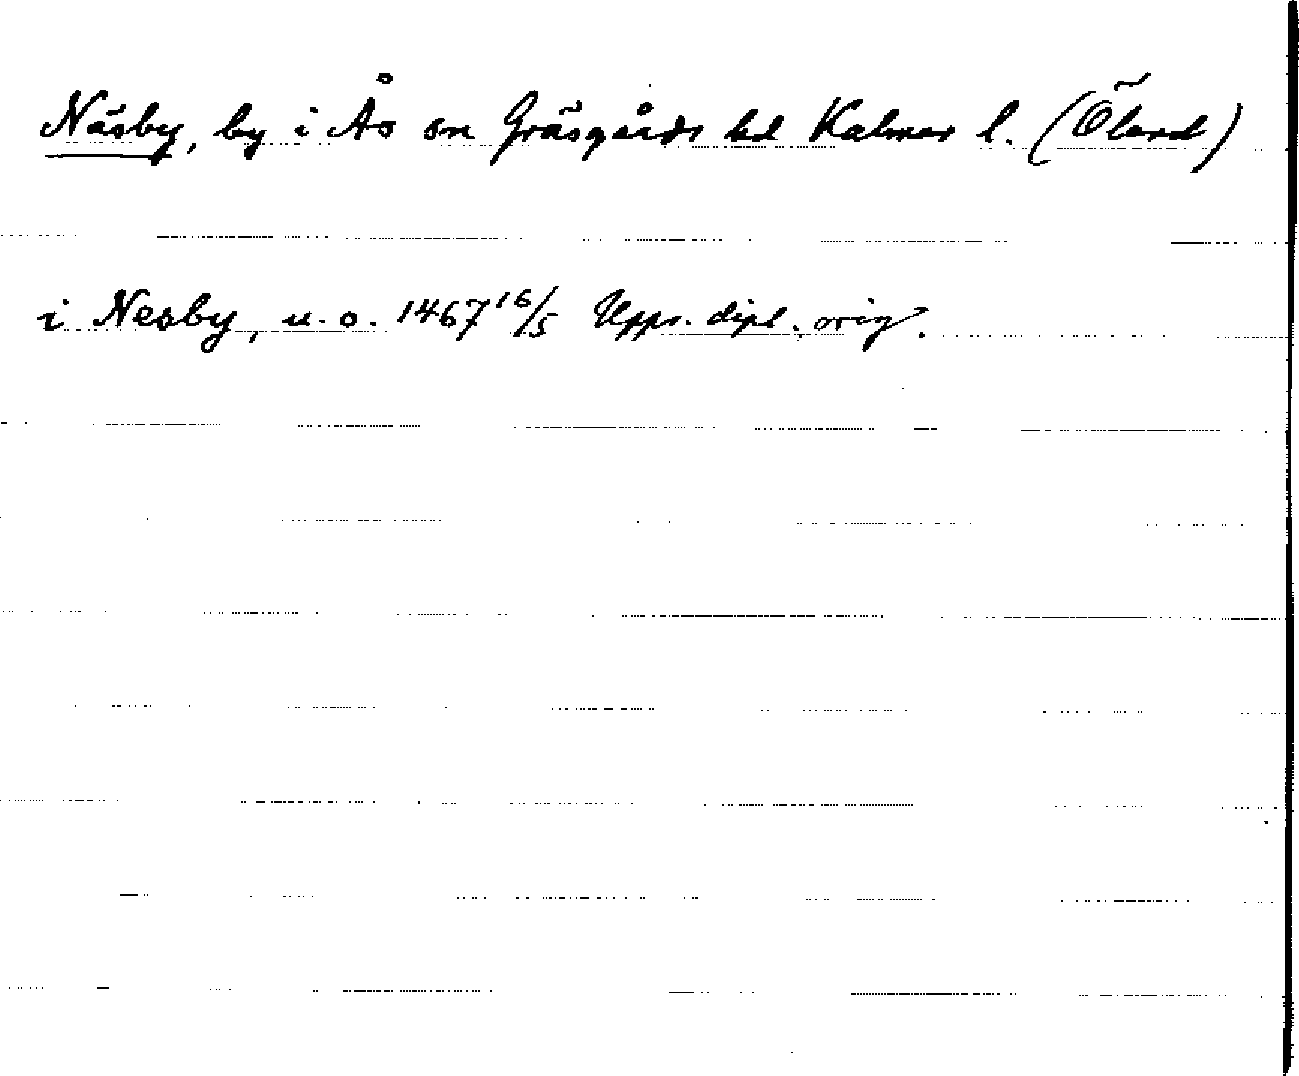 Näsby, by i Ås sn Gräsgårds hd Kalmar l. (Öland)
i Nesby, u. o. 1467 16/5 Upps. dipl. orig.